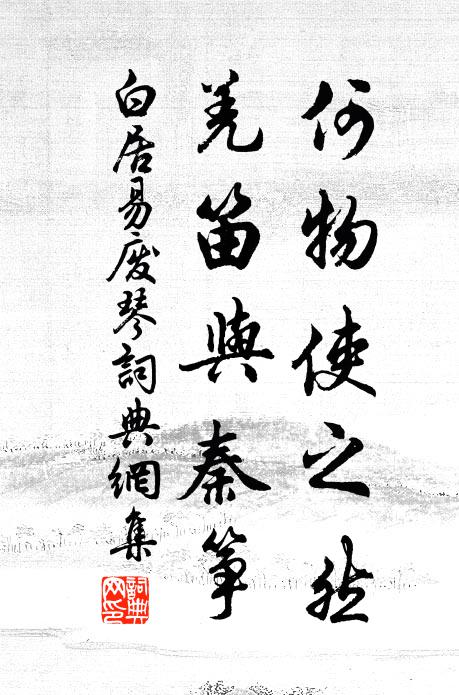 何物使之然
羌笛與秦箏
白居易廢琴詞典網集
詞典网印